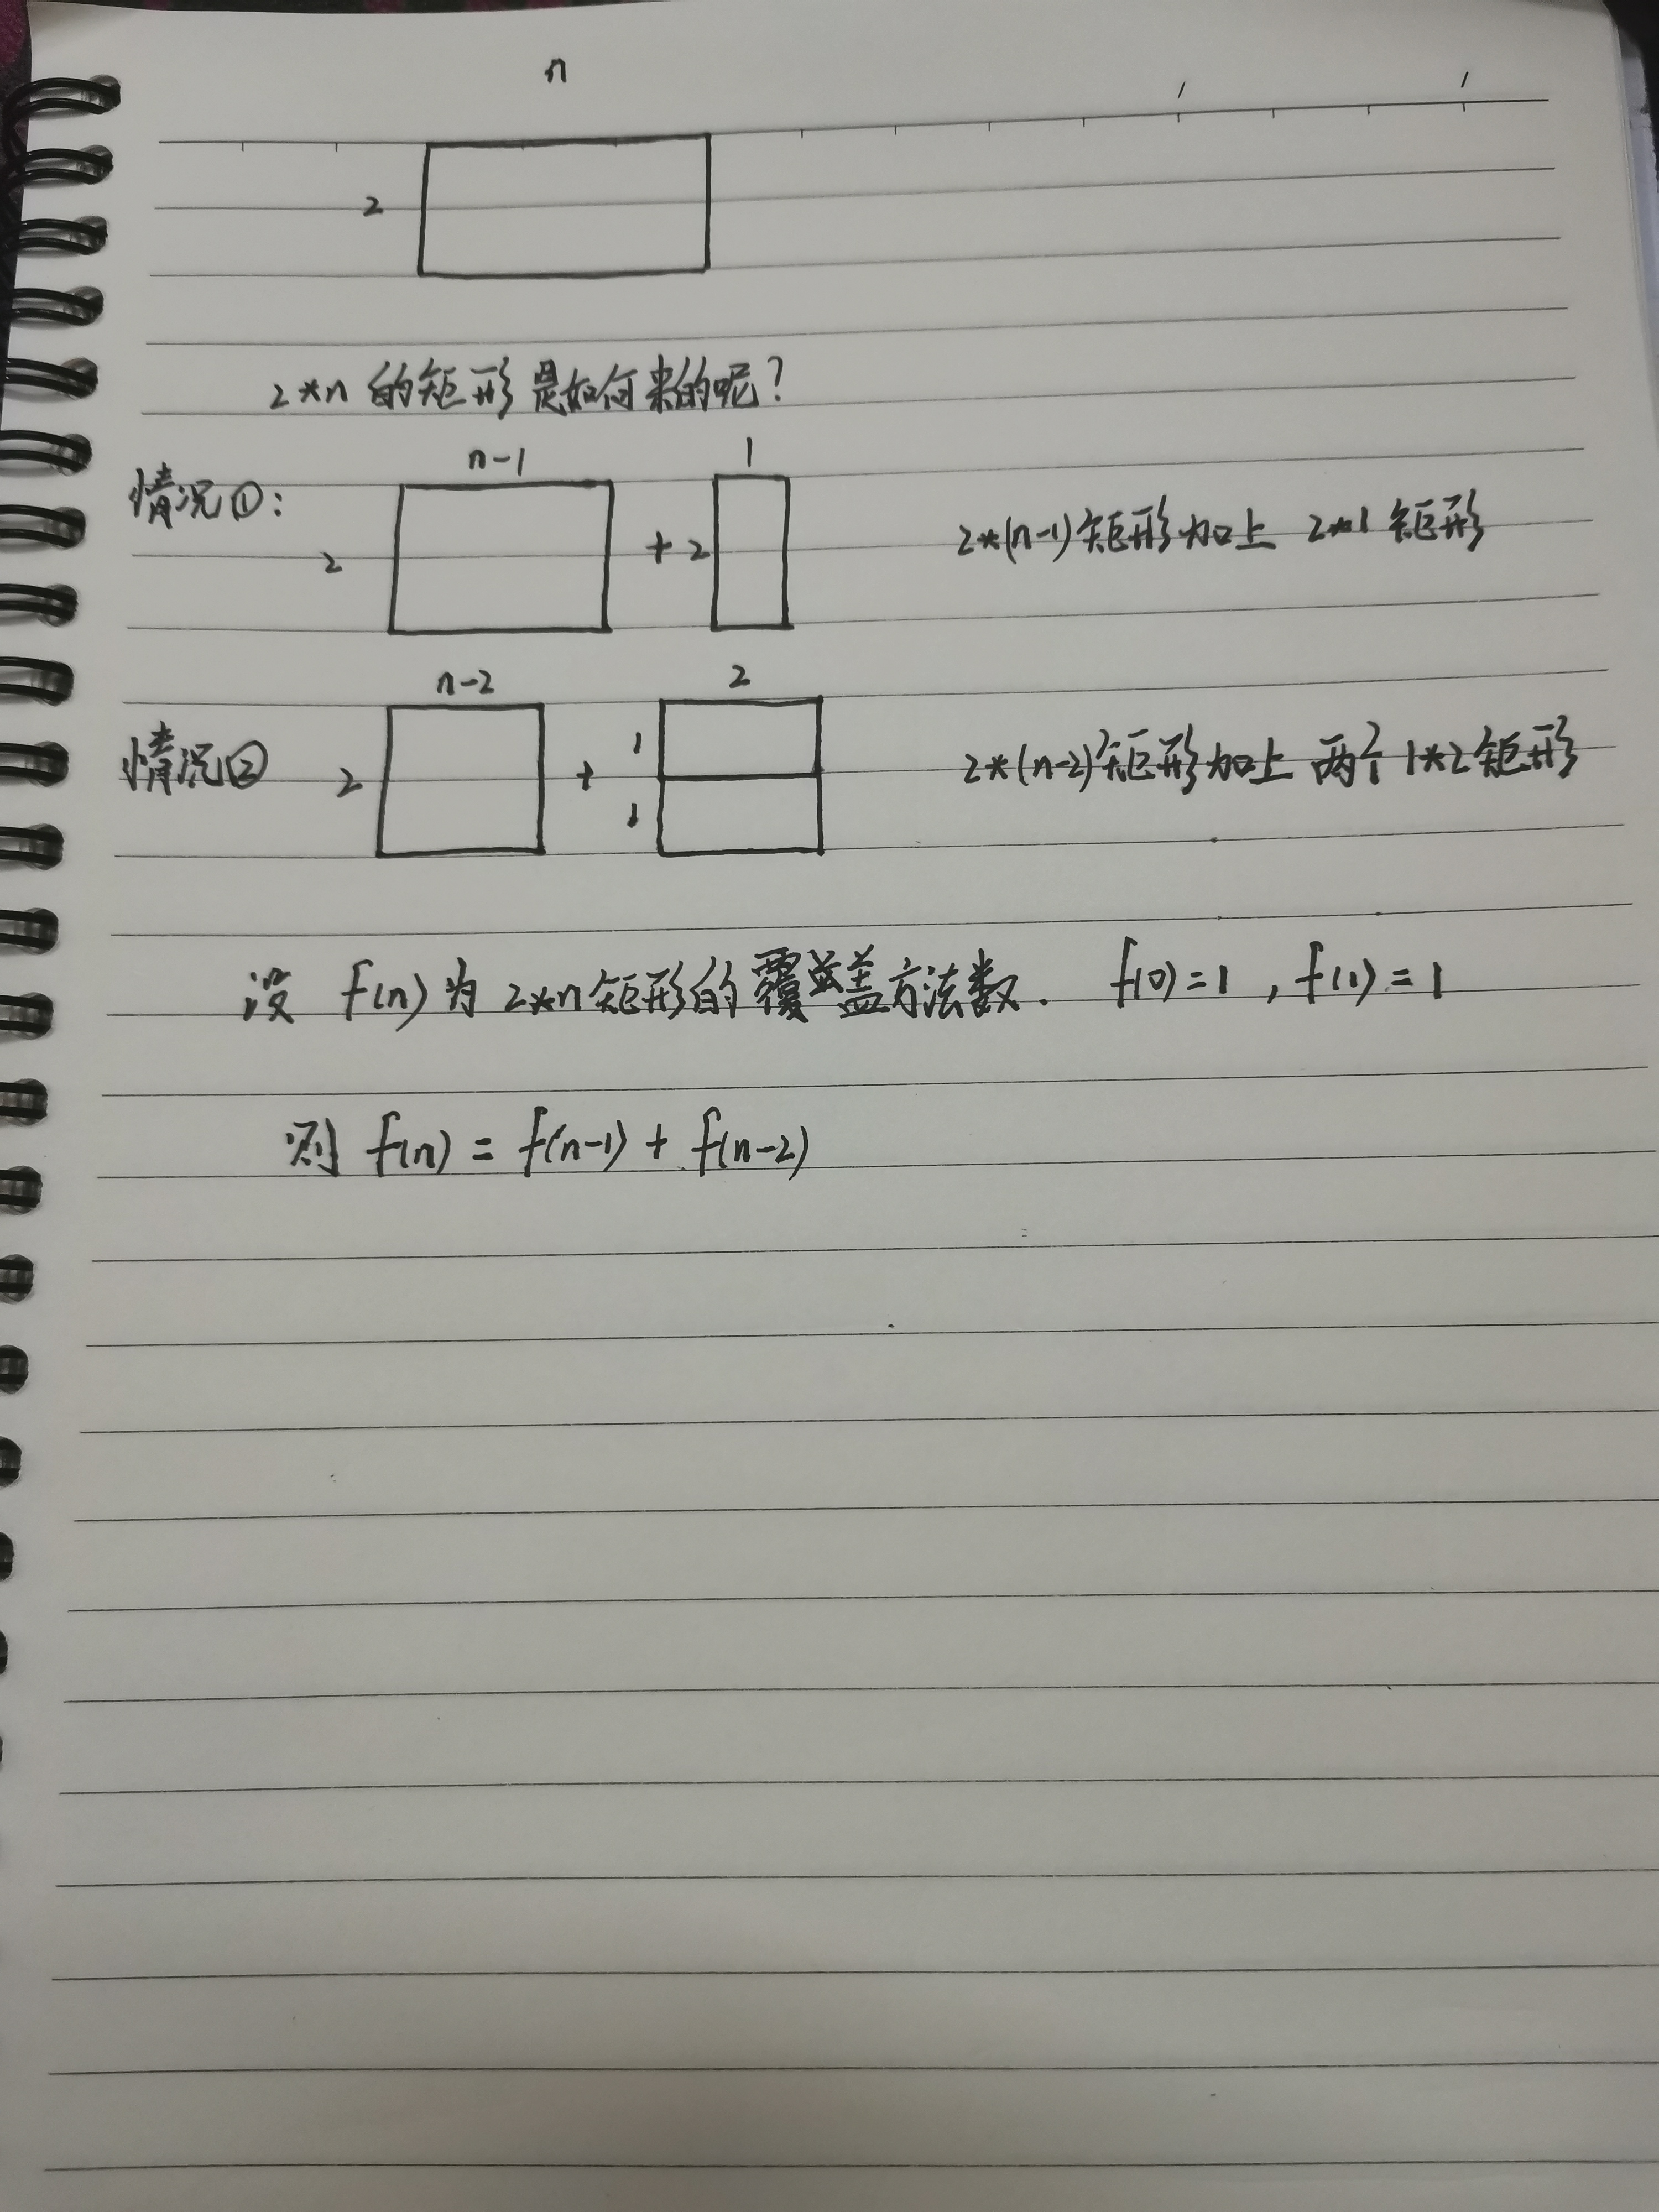 n
2
2*n 的矩形是如何来的呢?
情况①: 2 n-1 + 2 1 2*(n-1)矩形加上 2*1 矩形
情况② 2 n-2 + 1 1 2 2*(n-2)矩形加上 两个 1*2矩形
设 f(n) 为 2*n矩形的覆盖方法数. f(0)=1 , f(1)=1
则 f(n) = f(n-1) + f(n-2)